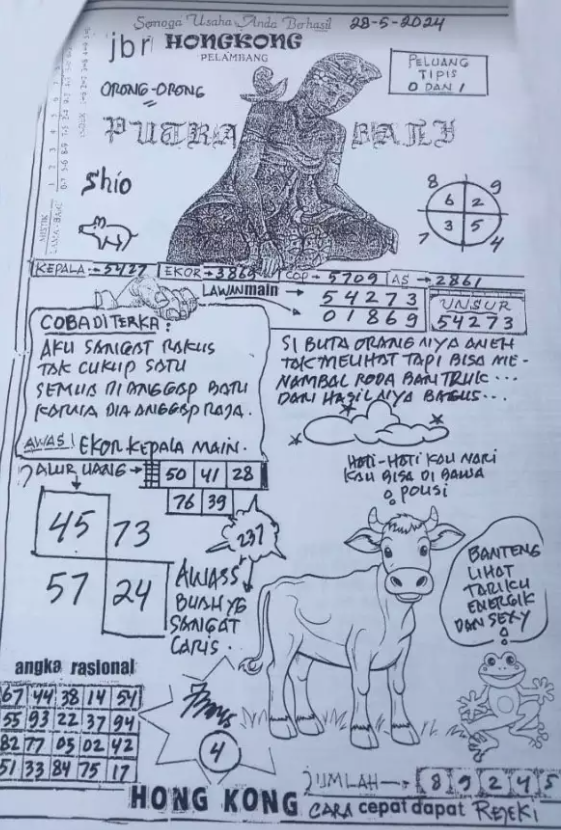 Semoga Usaha Anda Berhasil
28-5-2024
jbr HONGKONG
PELAMBANG
PELUANG
TIPIS
0 DAN 1
ORONG-ORONG
PUTRA BALI
Shio
8 9
6 2
3 5
7 4
KEPALA → 5427 EKOR → 3869 COP → 5709 AS → 2861
LAWAN main → 54273
01869
UNSUR
54273
COBA DI TERKA :
AKU SANGAT RAKUS
TAK CUKUP SATU
SEMUA DI ANGGAP BATU
KARNA DIA ANGGAP RAJA.
AWAS! EKOR KEPALA MAIN.
SI BUTA ORANG NYA ANEH
TAK MELIHAT TAPI BISA ME-
NAMBAL RODA BAN TRUK...
DAN HASIL NYA BAGUS...
HATI-HATI KAU NARI
KAU BISA DI BAWA
POLISI
JALUR UANG → 50 41 28
76 39
45 73
57 24
237
AWASS
BUAH YG
SANGAT
LARIS.
BANTENG
LIHAT
TARIKU
ENERGIK
DAN SEXY
angka rasional
67 44 38 14 54
55 93 22 37 94
82 77 05 02 42
51 33 84 75 17
4
JUMLAH → 8 9 2 4 5
HONG KONG CARA cepat dapat REJEKI